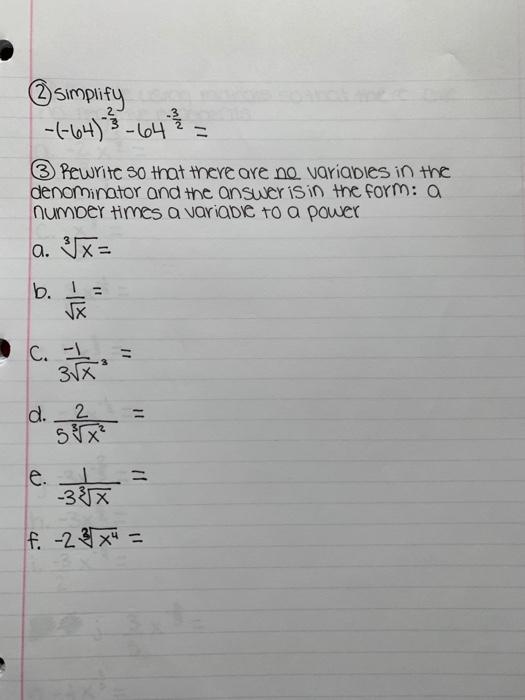 ② Simplify
-(-64)^{-2/3} - 64^{-3/2} =
③ Rewrite so that there are no variables in the
denominator and the answer is in the form: a
number times a variable to a power
a. ∛x =
b. 1/√x =
c. -1/(3√x³) =
d. 2/(5∛x²) =
e. 1/(-3∛x) =
f. -2∛x⁴ =